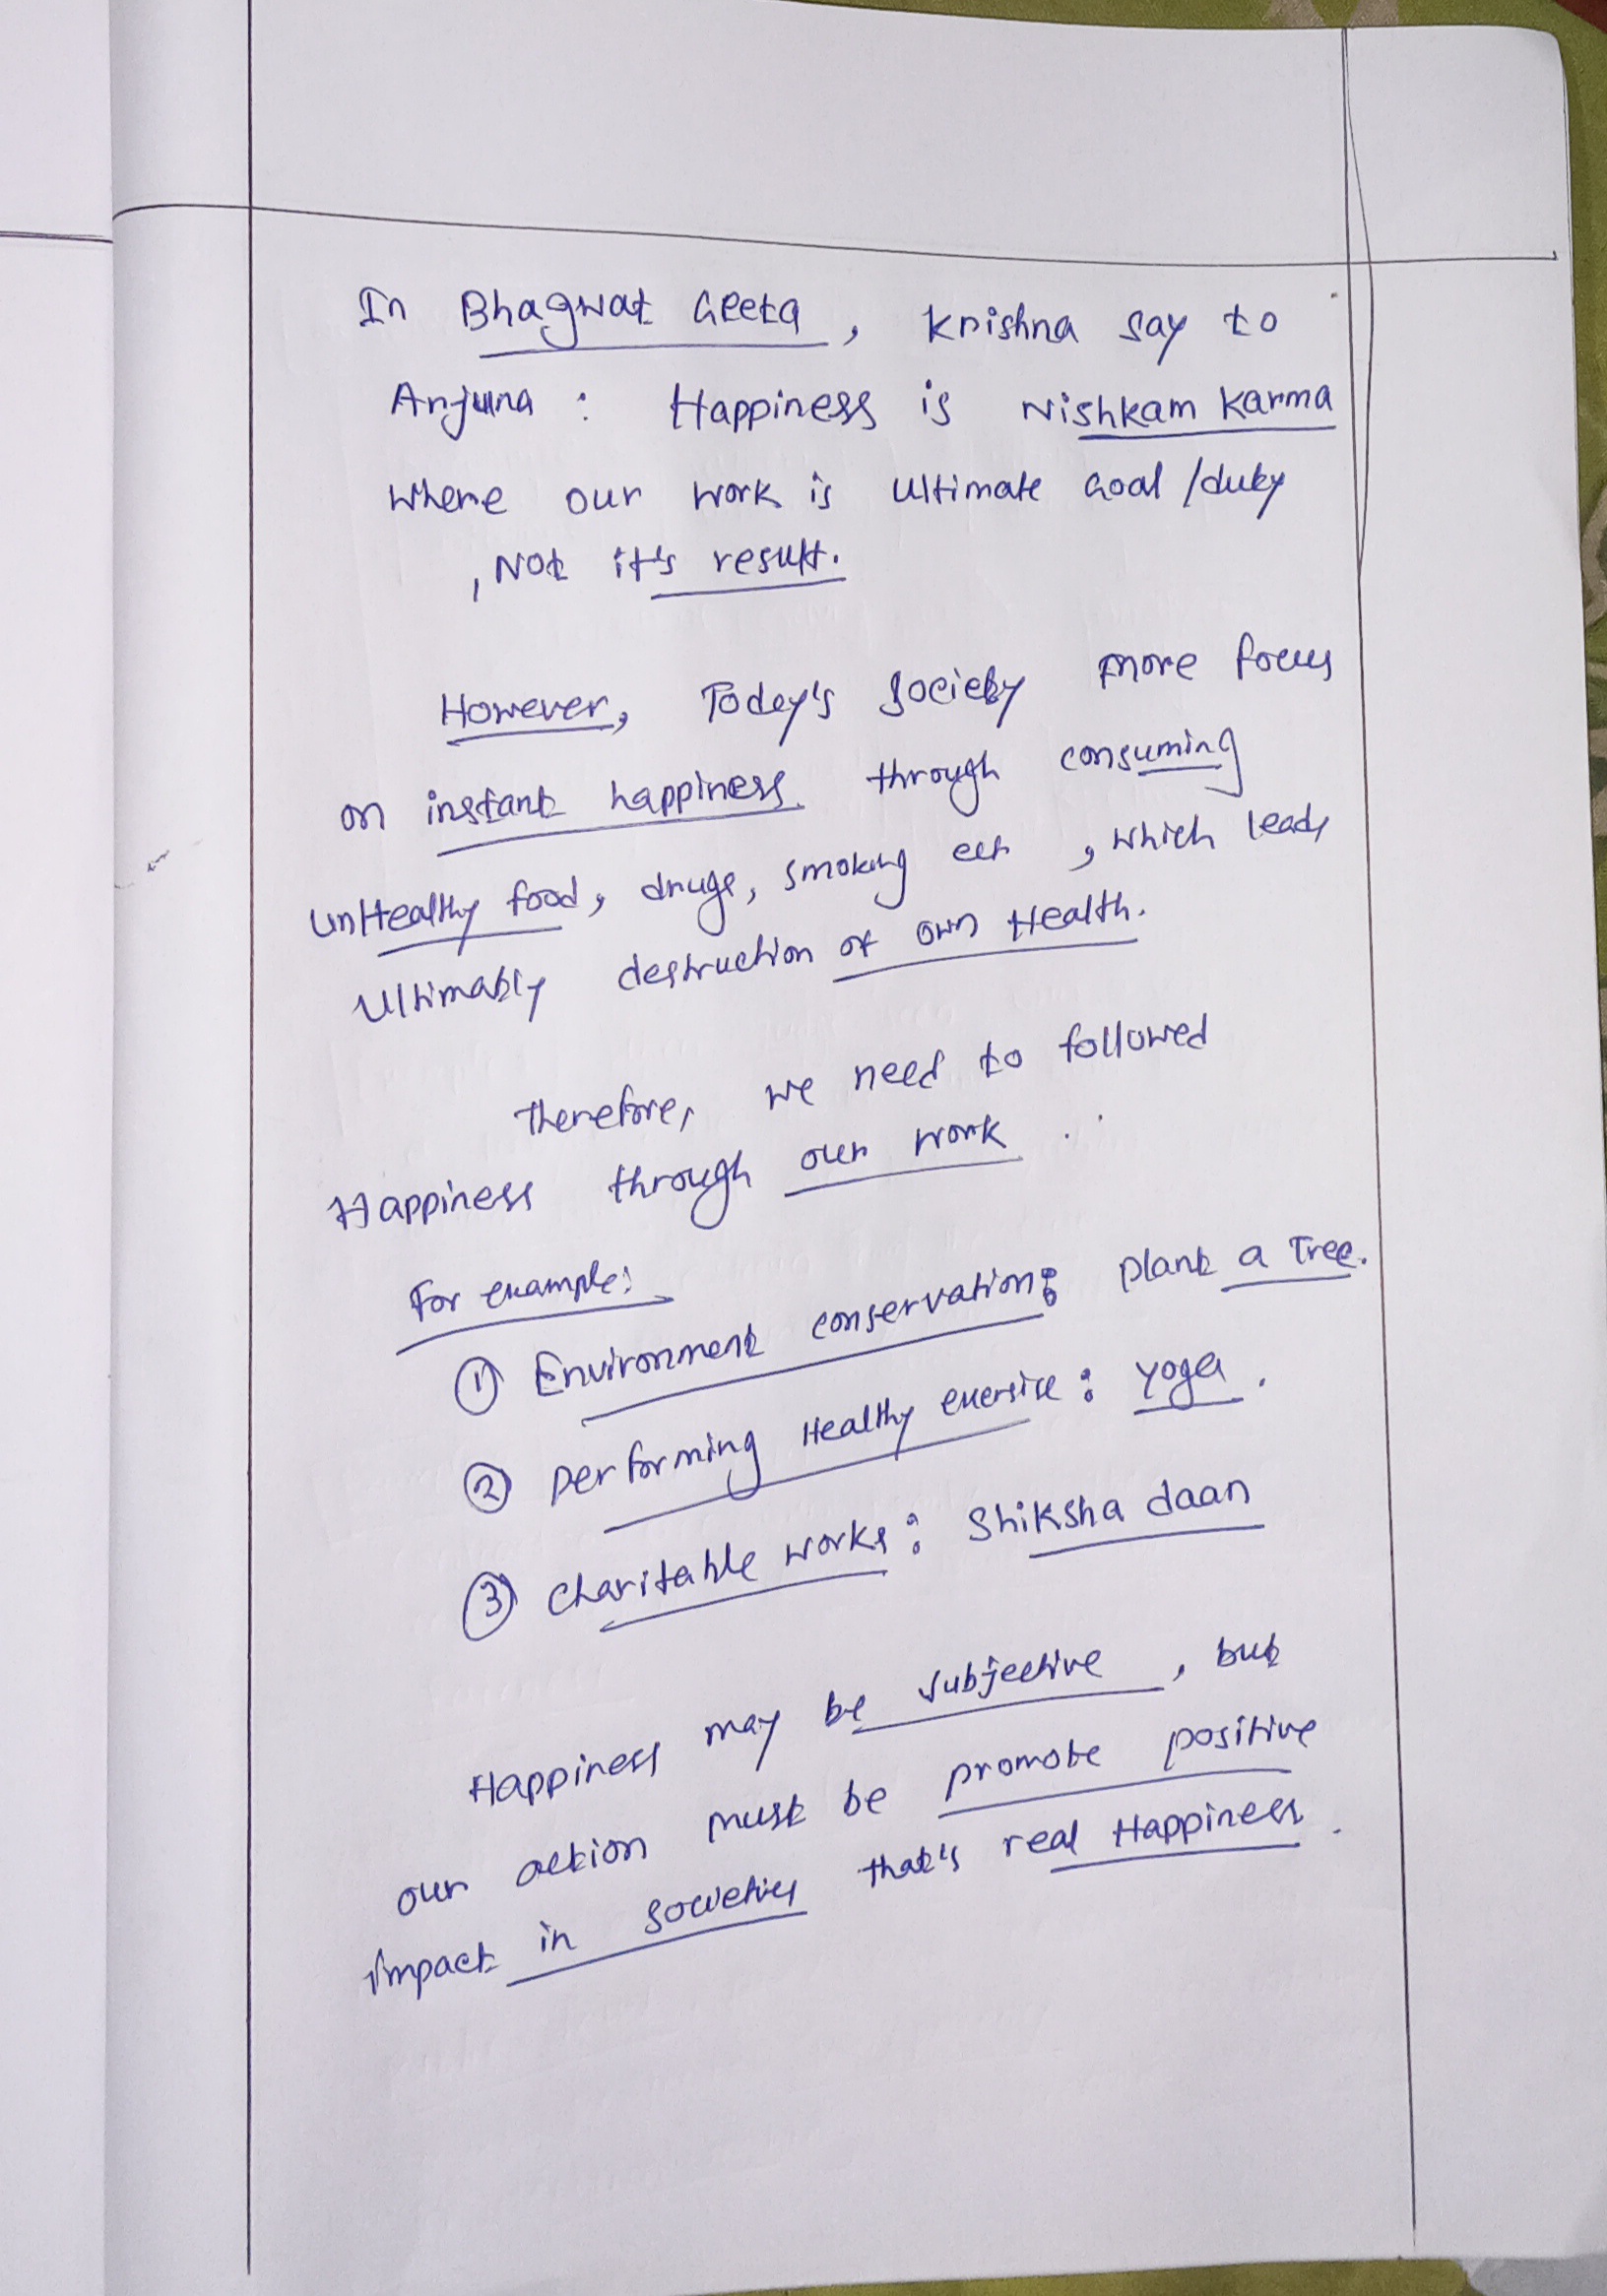 In Bhagwat Geeta, Krishna say to
Arjuna : Happiness is Nishkam Karma
Where our work is ultimate Goal /duty
, Not it's result.
However, Today's Society more focus
on instant happiness through consuming
unHealthy food, drugs, smoking etc, which leads
Ultimatly destruction of own Health.
Therefore, we need to followed
Happiness through our work
For example:
① Environment conservation: plant a Tree.
② Performing Healthy exersise : Yoga.
③ Charitable works : Shiksha daan
Happiness may be subjective, but
our action must be promote positive
impact in societies that's real Happiness.